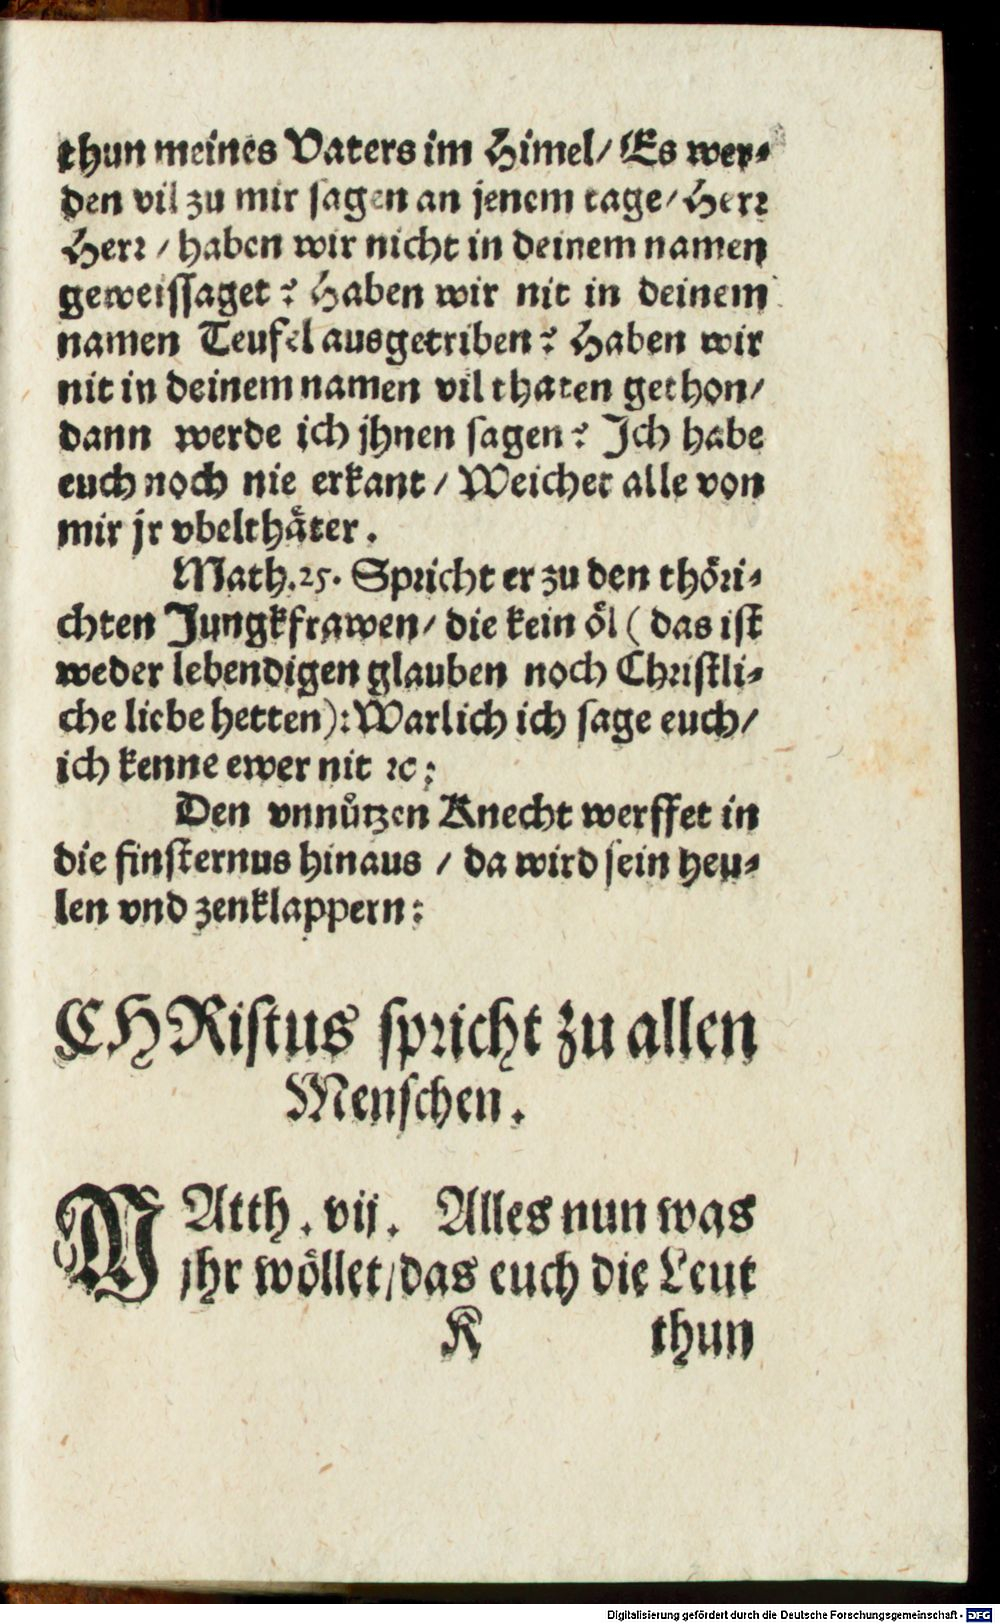 thun meines Vaters im Himel/ Es wer⸗
den vil zu mir sagen an jenem tage/ Herr
Herr / haben wir nicht in deinem namen
geweissaget? Haben wir nit in deinem
namen Teufel ausgetriben? Haben wir
nit in deinem namen vil thaten gethon/
dann werde ich jhnen sagen? Ich habe
euch noch nie erkant / Weichet alle von
mir jr vbelthåter.
Math. 25. Spricht er zu den thöri⸗
chten Jungkfrawen/ die kein öl ( das ist
weder lebendigen glauben noch Christli⸗
che liebe hetten): Warlich ich sage euch/
ich kenne ewer nit ꝛc:
Den vnnůtzen Knecht werffet in
die finsternus hinaus / da wird sein heu⸗
len vnd zenklappern:
CHRistus spricht zu allen
Menschen.
MAtth. vij. Alles nun was
jhr wöllet/das euch die Leut
K thun
Digitalisierung gefördert durch die Deutsche Forschungsgemeinschaft - DFG